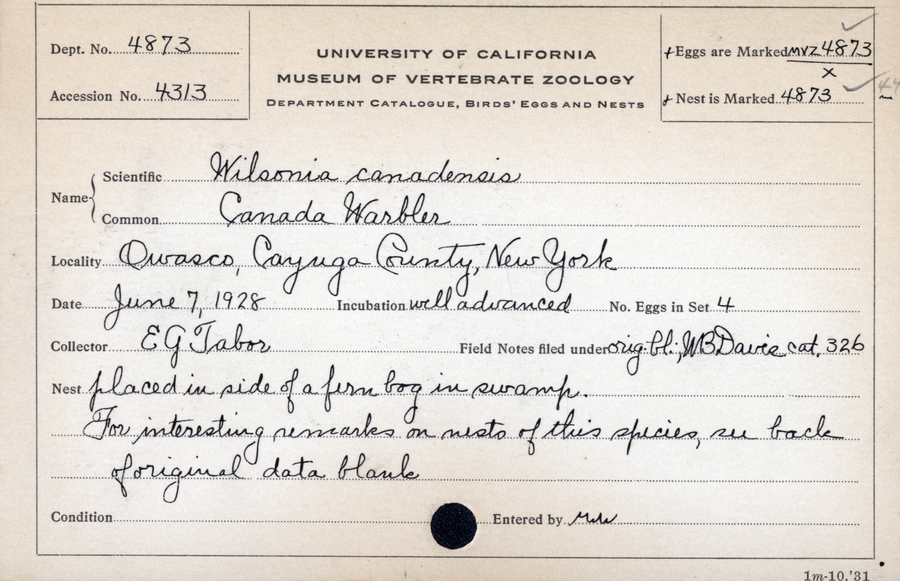 Dept. No. 4873
UNIVERSITY OF CALIFORNIA
MUSEUM OF VERTEBRATE ZOOLOGY
DEPARTMENT CATALOGUE, BIRDS' EGGS AND NESTS
Accession No. 4313
+ Eggs are Marked MVZ 4873
x
+ Nest is Marked 4873
Name
Scientific Wilsonia canadensis
Common Canada Warbler
Locality Owasco, Cayuga County, New York
Date June 7, 1928 Incubation well advanced No. Eggs in Set 4
Collector E G Tabor Field Notes filed under orig. bl.; WB Davis cat. 326
Nest placed in side of a fern bog in swamp.
For interesting remarks on nests of this species, see back
of original data blank
Condition Entered by
1m-10,'31